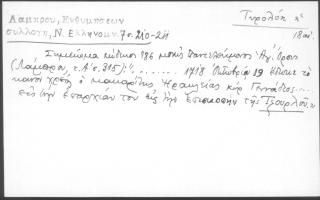 Λάμπρου, Ενθυμήσεων
συλλογή, Ν. Ελληνομν. 7 σ. 210-211
Τυρολόη κ
18 αι.
Σημείωμα κώδικος 786 μονής Παντελεήμονος Ἁγ. Ὄρους
(Λάμπρου, τ. Α' σ. 315): "......... 1718 Ὀκτωβρίῳ 19 ἔδωκε τὸ
κανο χρέος ὁ μακαρίτης Ἡρακλείας κὺρ Γεννάδιος.....
εἰς τὴν ἐπαρχίαν του εἰς τὴν ἐπισκοπὴν τῆς Τζουρλοῦς